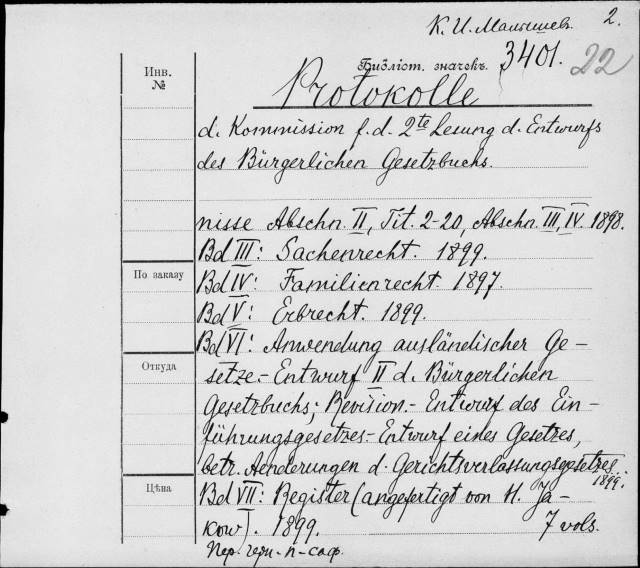 К. И. Малышевъ. 2.
Библіот. значекъ. 3401. 22
Инв.
№
Protokolle
d. Kommission f. d. 2te Lesung d. Entwurfs
des Bürgerlichen Gesetzbuchs.
nisse Abschn. II, Tit. 2-20, Abschn. III, IV. 1898.
Bd III: Sachenrecht. 1899.
По заказу
Bd IV: Familienrecht. 1897.
Bd V: Erbrecht. 1899.
Bd VI: Anwendung ausländischer Ge-
Откуда
setze.- Entwurf II d. Bürgerlichen
Gesetzbuchs; Revision.- Entwurf des Ein-
führungsgesetzes.- Entwurf eines Gesetzes,
betr. Aenderungen d. Gerichtsverlassungsgesetzes.
1899.
Цѣна
Bd VII: Register (angefertigt von H. Ja-
kow). 1899. 7 vols.
Пер. черн.-п-саф.